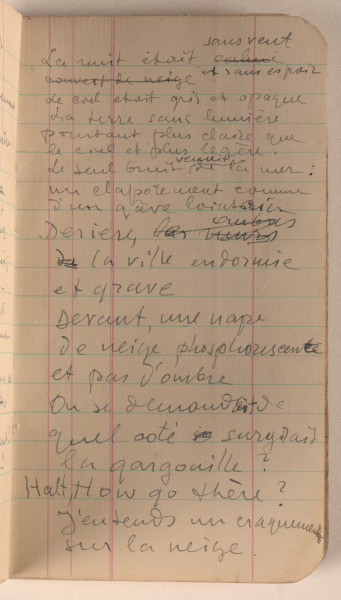 sans vent
La nuit était calme
couvert de neige et sans espoir
Le ciel était gris et opaque
La terre sans lumière
pourtant plus claire que
le ciel et plus légère.
Le seul bruit venait de la mer :
un clapotement comme
d'un gave lointain
Deriere, les ombres
la ville endormie
et grave
Devant, une nape
de neige phosphorescente
et pas d'ombre
On se demandait de
quel coté surgirait
la gargouille ?
Halt, How go thère ?
J'entends un craquement
sur la neige.